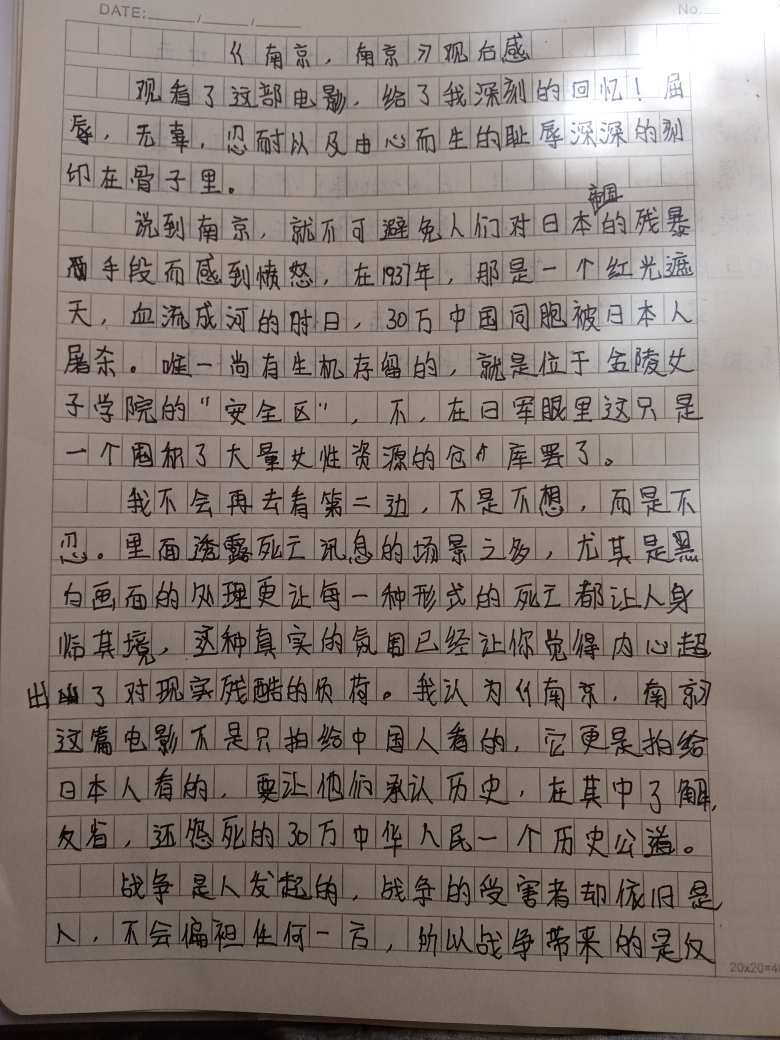 DATE: / /
No.
《南京，南京》观后感
观看了这部电影，给了我深刻的回忆！屈
辱，无辜，忍耐以及由心而生的耻辱深深的刻
印在骨子里。
说到南京，就不可避免人们对日本帝国的残暴
手段而感到愤怒，在1937年，那是一个红光遮
天，血流成河的时日，30万中国同胞被日本人
屠杀。唯一尚有生机存留的，就是位于金陵女
子学院的"安全区"，不，在日军眼里这只是
一个囤积了大量女性资源的仓库罢了。
我不会再去看第二边，不是不想，而是不
忍。里面透露死亡讯息的场景之多，尤其是黑
白画面的处理更让每一种形式的死亡都让人身
临其境，这种真实的氛围已经让你觉得内心超
出了对现实残酷的负荷。我认为《南京，南京》
这篇电影不是只拍给中国人看的，它更是拍给
日本人看的，要让他们承认历史，在其中了解，
反省，还怨死的30万中华人民一个历史公道。
战争是人发起的，战争的受害者却依旧是
人，不会偏袒任何一方，所以战争带来的是仅
20x20=4